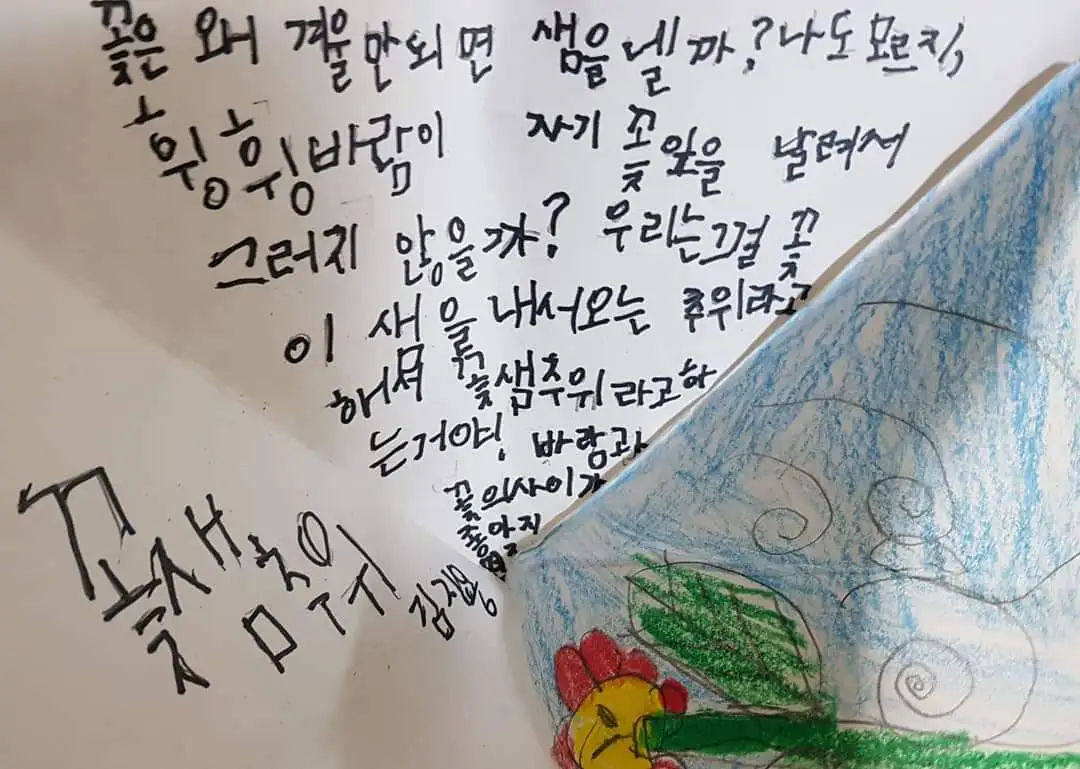 꽃은 왜 겨울만되면 샘을 넬까? 나도 모르지,
휭휭바람이 자기 꽃잎을 날려서
그러지 않을까? 우리는그걸 꽃
이 샘을내서오는 추위라고
해서 꽃샘추위라고하
는거야! 바람과
꽃의사이가
좋아지
꽃샘추위